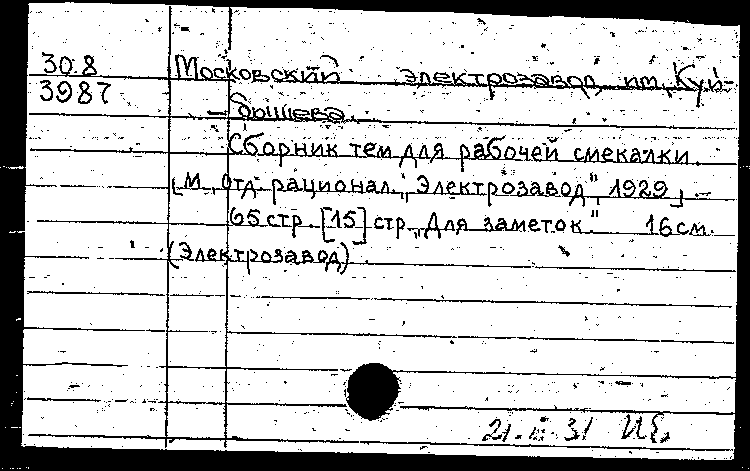 308 Московский электрозавод им. Куй-
3987 бышева.
Сборник тем для рабочей смекалки.
[М., отд. рационал. "Электрозавод", 1929]. –
65 стр. [15] стр. "Для заметок." 16 см.
(Электрозавод).
21. III. 31